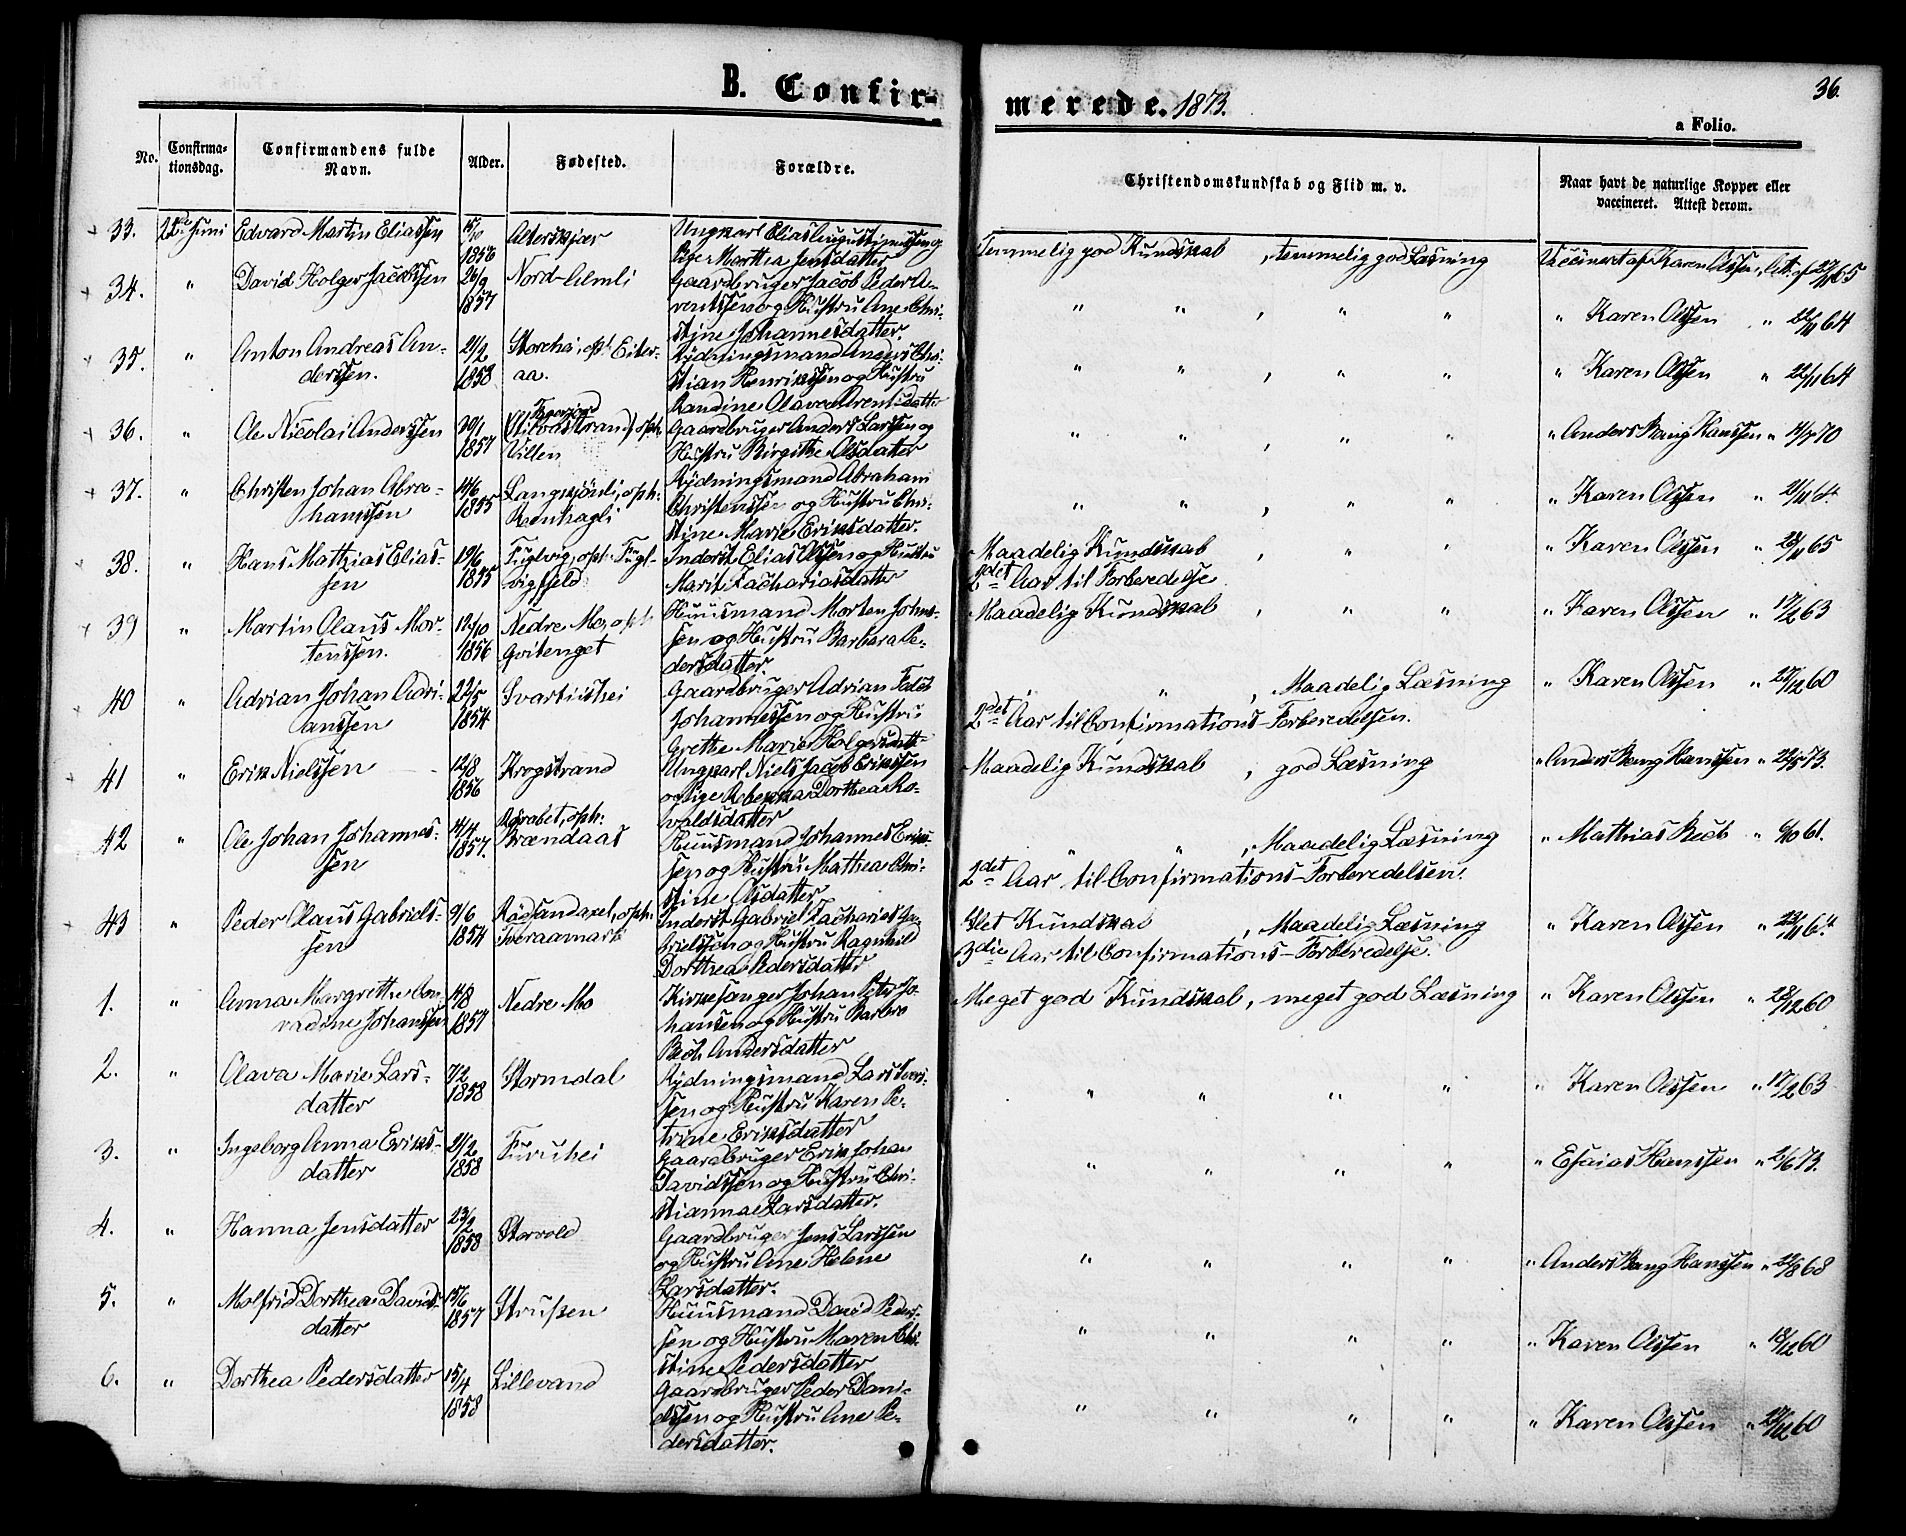 B. Confir-
merede. 1873.
36.
a Folio.
No.
Confirma-
tionsdag.
Confirmandens fulde
Navn.
Alder.
Fødested.
Forældre.
Christendomskundskab og Flid m. v.
Naar havt de naturlige Kopper eller
vaccineret. Attest derom.
33. Juni Edvard Martin Eliassen 1856 Alterskjær Ungkarl Elias og
Pige Marthea Jensdatter
Temmelig god Kundskab, temmelig god Læsning Vaccineret af Karen Olssen, Att. af 65
34. " David Holger Jacobssen 26/9 1857 Nord-Almli Gaardbruger Jacob Peder A-
rentssen og Hustru Ane Chri-
stine Johannesdatter.
" " , " " " Karen Olssen " 22/11 64
35. " Anton Andreas An-
derssen. 21/2 1858 Storehei, oph. Eiter-
aa. Rydningsmand Anders Chri-
stian Henrikssen og Hustru
Randine Olava Arentsdatter
" " , " " " Karen Olssen " 22/11 64
36. " Ole Nicolai Anderssen 30/1 1857 oph.
Villen Gaardbruger Anders Larssen og
Hustru Birgithe Olsdatter
" " , " " " Anders Bang Hanssen " 4/7 70
37. " Christen Johan Abra-
hamssen 14/6 1855 Langskjönli, oph.
Renhagli Rydningsmand Abraham
Christenssen og Hustru Chri-
stine Marie Eriksdatter.
" " , " " " Karen Olssen " 21/11 64.
38. " Hans Mathias Elias-
sen 19/6 1855 Fuglvig, oph. Fugl-
vigfjeld Inderst Elias Olssen og Hustru
Marit Zachariasdatter
Maadelig Kundskab , " " " Karen Olssen " 28/11 65
2det Aar til Forberedelse
39 " Martin Olaus Mor-
tenssen. 12/10 1856 Nedre Mo, oph.
Qvitenget Huusmand Morten Johns-
sen og Hustru Barbara Pe-
dersdatter.
Maadelig Kundskab , " " " Karen Olssen " 17/2 63
40 " Adrian Johan Adri-
anssen 22/5 1854 Svartiishei Gaardbruger Adrian
Johannessen og Hustru
Grethe Marie Holgersdatt-
" " , Maadelig Læsning " Karen Olssen " 27/12 60
2det Aar til Confirmations-Forberedelsen.
41 " Erik Nielssen 12/8 1856 Krogstrand Ungkarl Niels Jacob Erikssen
og Pige Rebekka Dorthea Ro-
valdsdatter
Maadelig Kundskab , god Læsning " Anders Bang Hanssen " 22/5 73.
42 " Ole Johan Johannes-
sen 4/4 1857. oph.
Brændaas Huusmand Johannes Eriks-
sen og Hustru Mathea Chri-
stine Olsdatter
" " , Maadelig Læsning " Mathias Bech " 6/10 61.
2det Aar til Confirmations-Forberedelsen.
43 " Peder Olaus Gabriels-
sen 9/6 1854 Rödsandaxel, oph.
Tveraamark Inderst Gabriel Zacharias Ga-
brielssen og Hustru Ragnhil
Dorthea Pedersdatter
Slet Kundskab , Maadelig Læsning " Karen Olssen " 23/11 64
3die Aar til Confirmations-Forberedelse.
1. " Anna Margrethe Con-
radine Johanssen 14/8 1857 Nedre Mo Kirkesanger Johan Peter Jo-
hansen og Hustru Barbro
Bech Andersdatter
Meget god Kundskab, meget god Læsning " Karen Olssen " 28/12 60
2. " Olava Marie Lars-
datter 7/2 1858 Stormdal Rydningsmand Lars Ivers-
sen og Hustru Karen Pe-
trine Eriksdatter
" " " " " Karen Olssen " 17/2 63
3. " Ingeborg Anna Eriks-
datter 21/2 1858 Furuhei Gaardbruger Erik Johan
Davidssen og Hustru Chri-
stianna Larsdatter.
" " " " " Esaias Hanssen " 2/6 73.
4. " Hanna Jensdatter 23/2 1858 Storvold Gaardbruger Jens Larssen
og Hustru Ane Helene
Larsdatter.
" " " " " Anders Bang Hanssen " 22/8 68
5. " Molfrid Dorthea Davids-
datter 15/6 1857 Strupen Huusmand David Peders-
sen og Hustru Maren Chri-
stine Pedersdatter
" " " " " Karen Olssen " 18/12 60
6. " Dorthea Pedersdatter 15/4 1858 Lillevand Gaardbruger Peder Dani-
elssen og Hustru Ane Pe-
dersdatter.
" " " " " Karen Olssen " 17/12 60